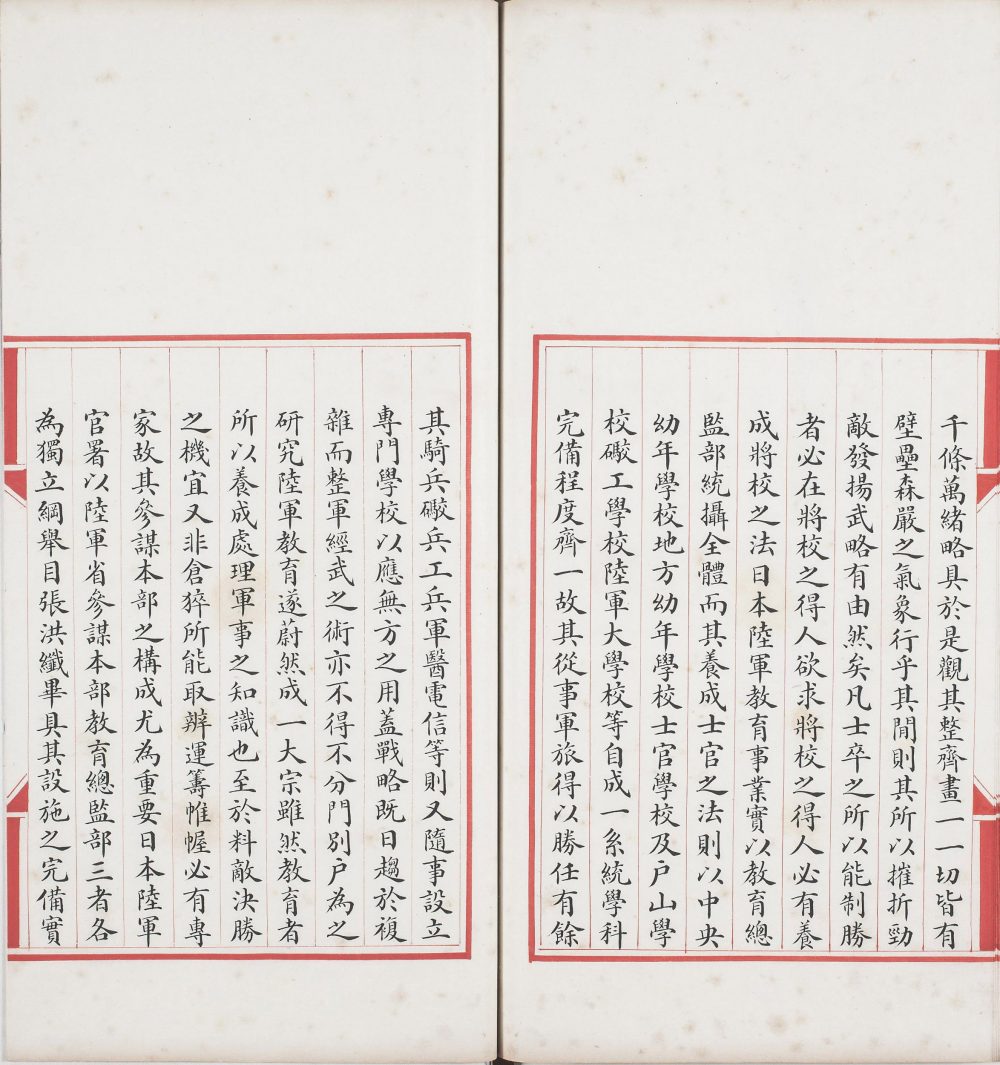 千條萬緒略具於是觀其整齊畫一一切皆有
壁壘森嚴之氣象行乎其閒則其所以摧折勁
敵發揚武略有由然矣凡士卒之所以能制勝
者必在將校之得人欲求將校之得人必有養
成將校之法日本陸軍教育事業實以教育總
監部統攝全體而其養成士官之法則以中央
幼年學校地方幼年學校士官學校及戶山學
校礮工學校陸軍大學校等自成一系統學科
完備程度齊一故其從事軍旅得以勝任有餘
其騎兵礮兵工兵軍醫電信等則又隨事設立
專門學校以應無方之用蓋戰略既日趨於複
雜而整軍經武之術亦不得不分門別戶為之
研究陸軍教育遂蔚然成一大宗雖然教育者
所以養成處理軍事之知識也至於料敵決勝
之機宜又非倉猝所能取辦運籌帷幄必有專
家故其參謀本部之構成尤為重要日本陸軍
官署以陸軍省參謀本部教育總監部三者各
為獨立綱舉目張洪纖畢具其設施之完備實